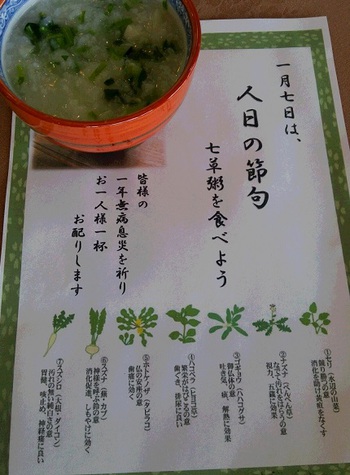 一月七日は、
人日の節句
七草粥を食べよう
皆様の
一年無病息災を祈り
お一人様一杯
お配りします
①セリ（水辺の山菜）
競り勝つの意
消化を助け黄疸をなくす
②ナズナ（ぺんぺん草）
なでて汚れをとりのぞくの意
視力、五臓に効果
③ゴギョウ（ハハコグサ）
御仏体の意
吐き気、痰、解熱に効果
④ハコベラ（ヒヨコ草）
繁栄がはびこるの意
歯ぐき、排尿に良い
⑤ホトケノザ（タビラコ）
仏の安座の意
歯痛に効く
⑥スズナ（蕪・カブ）
神様を呼ぶ鈴の意
消化促進、しもやけに効く
⑦スズシロ（大根・ダイコン）
汚れの無い純白さの意
胃腸、咳止め、神経痛に良い